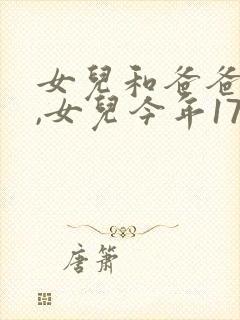 女兒和爸爸
,女兒今年17
唐簫